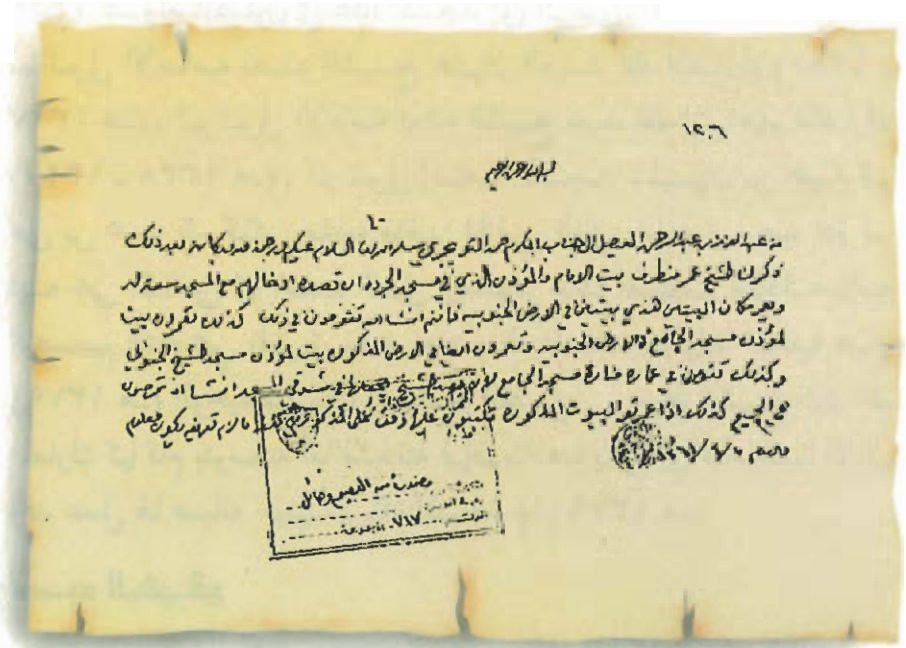 ١٢٠٦
بسم الله الرحمن الرحيم
من عبد العزيز بن عبد الرحمن الفيصل الى جناب المكرم حمد التويجري سلمه الله السلام عليكم ورحمة الله وبركاته بعد ذلك
ذكر لنا الشيخ عمر من طرف بيت الامام والمؤذن الذي في مسجد الجردة ان قصده ادخالهم مع المسجد سعة له
ويعمر مكان البيتين هذي بيتين في الارض الجنوبيه فانتم انشا الله تقومون في ذلك كذلك تعمرون بيت
لمؤذن مسجد الجامع في الارض الجنوبيه وتعمرون ايضا في الارض المذكورة بيت لمؤذن مسجد الشيخ الجنوبي
وكذلك تقومون في عمارة منارة مسجد الجامع شرقي المسجد انشا الله تحرصون
في الجميع كذلك اذا عمرتو البيوت المذكورة تكتبون عليها وقف على هذا ما لزم تعريفه يكون معلوم
والسلام
صندوق القصيم وحائل
٧١٧